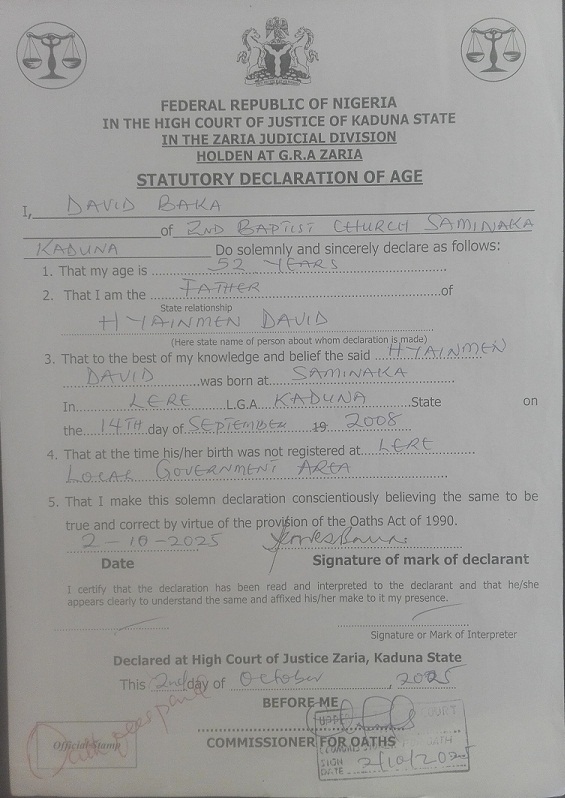 FEDERAL REPUBLIC OF NIGERIA
IN THE HIGH COURT OF JUSTICE OF KADUNA STATE
IN THE ZARIA JUDICIAL DIVISION
HOLDEN AT G.R.A ZARIA
STATUTORY DECLARATION OF AGE
I, DAVID BAKA
of 2ND BAPTIST CHURCH SAMINAKA
KADUNA Do solemnly and sincerely declare as follows:
1. That my age is 52 YEARS
2. That I am the FATHER of
State relationship
HYAINMEN DAVID
(Here state name of person about whom declaration is made)
3. That to the best of my knowledge and belief the said HYAINMEN
DAVID was born at SAMINAKA
In LERE L.G.A KADUNA State on
the 14TH day of SEPTEMBER 19 2008
4. That at the time his/her birth was not registered at LERE
LOCAL GOVERNMENT AREA
5. That I make this solemn declaration conscientiously believing the same to be
true and correct by virtue of the provision of the Oaths Act of 1990.
2-10-2025
Date Signature of mark of declarant
I certify that the declaration has been read and interpreted to the declarant and that he/she
appears clearly to understand the same and affixed his/her make to it my presence.
Signature or Mark of Interpreter
Declared at High Court of Justice Zaria, Kaduna State
This 2nd day of October, 2025
BEFORE ME
COURT
COMMISSIONER FOR OATHS
OATH
Official Stamp
SIGN
DATE 2/10/2025